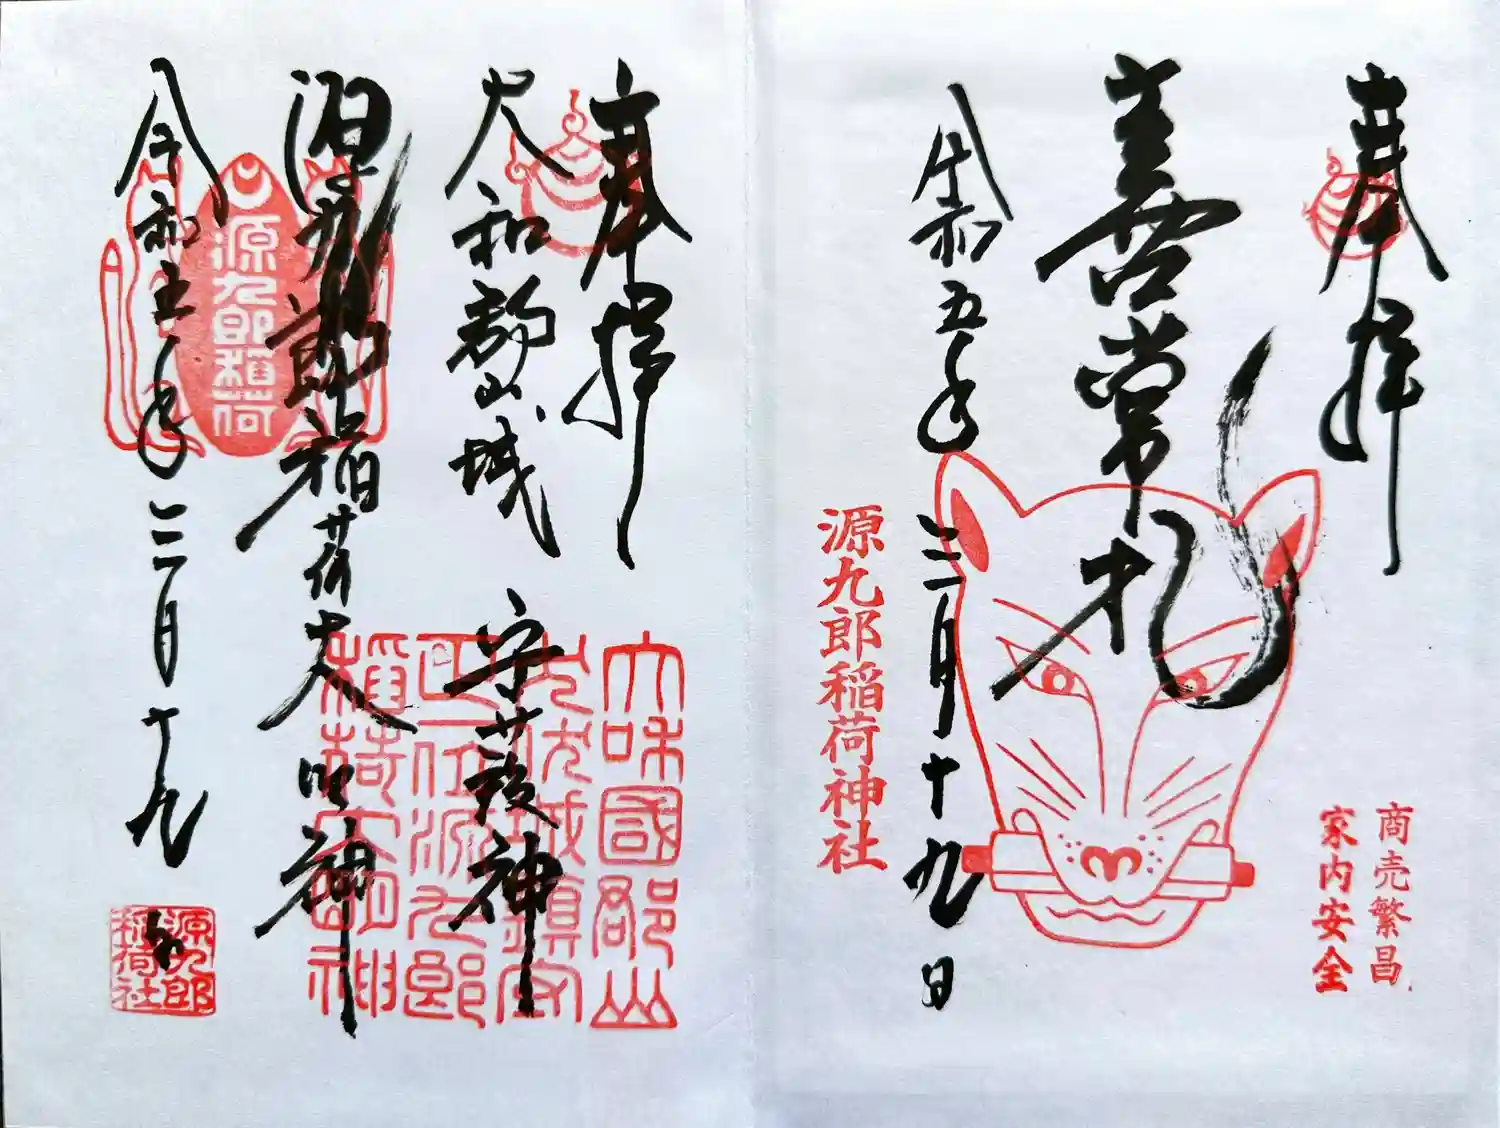 奉拝
商売繁昌
家内安全
喜常
令和五年三月十九日
源九郎稲荷神社
奉拝
大和郡山城 守護神
源九郎稲荷大明神
令和五年三月十九日
源九郎稲荷
大和國郡山
正一位源九郎
稲荷大明神
源九郎
稲荷社